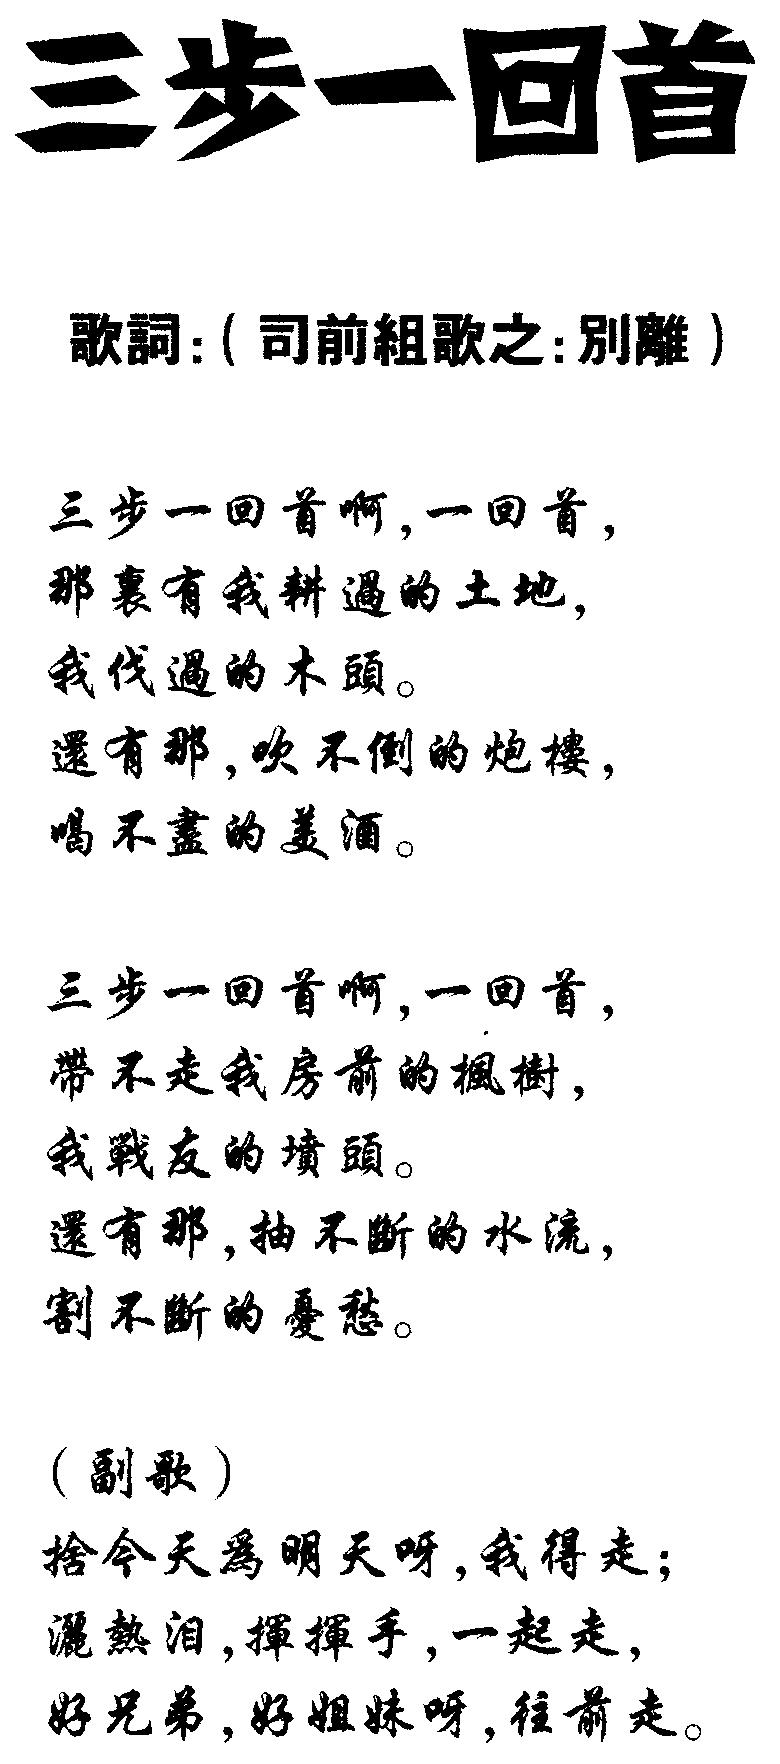 三步一回首
歌詞:(司前組歌之:別離)
三步一回首啊,一回首,
那裏有我耕過的土地,
我伐過的木頭。
還有那,吹不倒的炮樓,
喝不盡的美酒。
三步一回首啊,一回首,
帶不走我房前的楓樹,
我戰友的墳頭。
還有那,抽不斷的水流,
割不斷的憂愁。
(副歌)
捨今天為明天呀,我得走;
灑熱泪,揮揮手,一起走,
好兄弟,好姐妹呀,往前走。